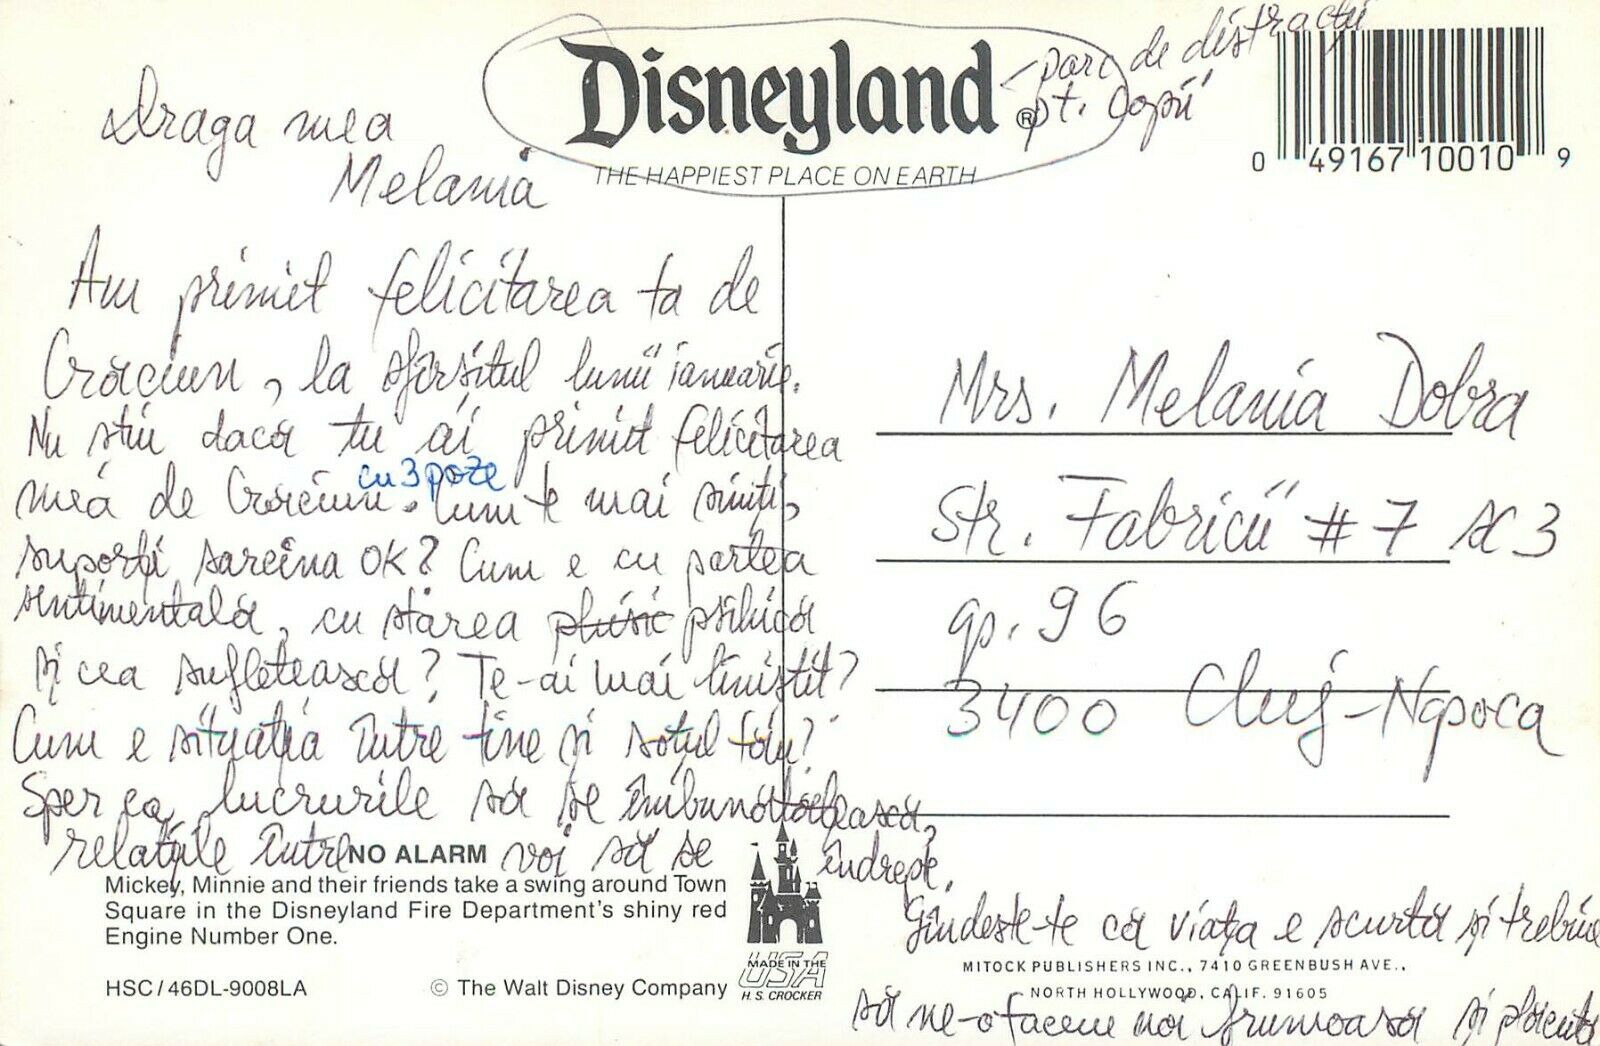 Disneyland ®
THE HAPPIEST PLACE ON EARTH
– parc de distracții
pt. copii
0 49167 10010 9
Draga mea
Melania
Am primit felicitarea ta de
Crăciun, la sfîrsitul lunii ianuarie.
Nu stiu dacă tu ai primit felicitarea
cu 3 poze
mea de Crăciun. Cum te mai simți,
suporți sarcina OK? Cum e cu partea
sentimentală, cu starea phisic psihică
și cea sufletească? Te-ai mai linistit?
Cum e situația între tine si soțul tău?
Sper ca lucrurile să se îmbunătățească,
relațiile între voi să se îndrepte.
Gîndeste-te că viața e scurtă și trebuie
să ne-o facem noi frumoasă și plăcută
Mrs. Melania Dobra
Str. Fabricii # 7 sc 3
ap. 96
3400 Cluj-Napoca
NO ALARM
Mickey, Minnie and their friends take a swing around Town
Square in the Disneyland Fire Department's shiny red
Engine Number One.
HSC/46DL-9008LA
© The Walt Disney Company
MADE IN THE
USA
H. S. CROCKER
MITOCK PUBLISHERS INC., 7410 GREENBUSH AVE.,
NORTH HOLLYWOOD, CALIF. 91605